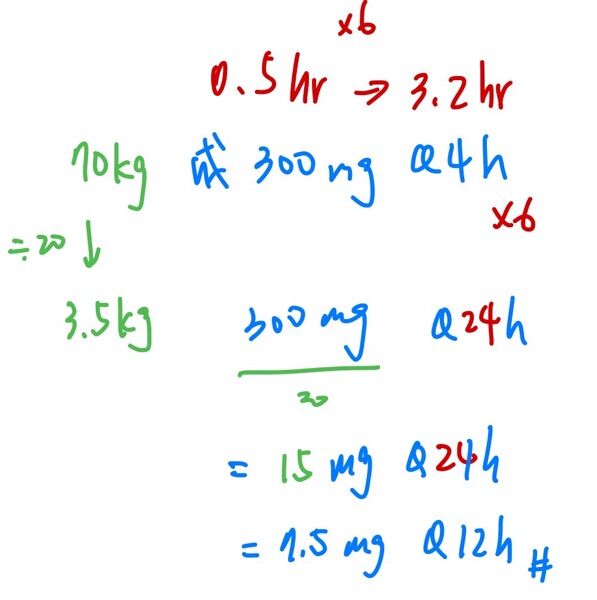 x6
0.5hr → 3.2hr
70kg 成 300mg Q4h
x6
÷20 ↓
3.5kg 300mg Q24h
20
= 15mg Q24h
= 7.5mg Q12h #